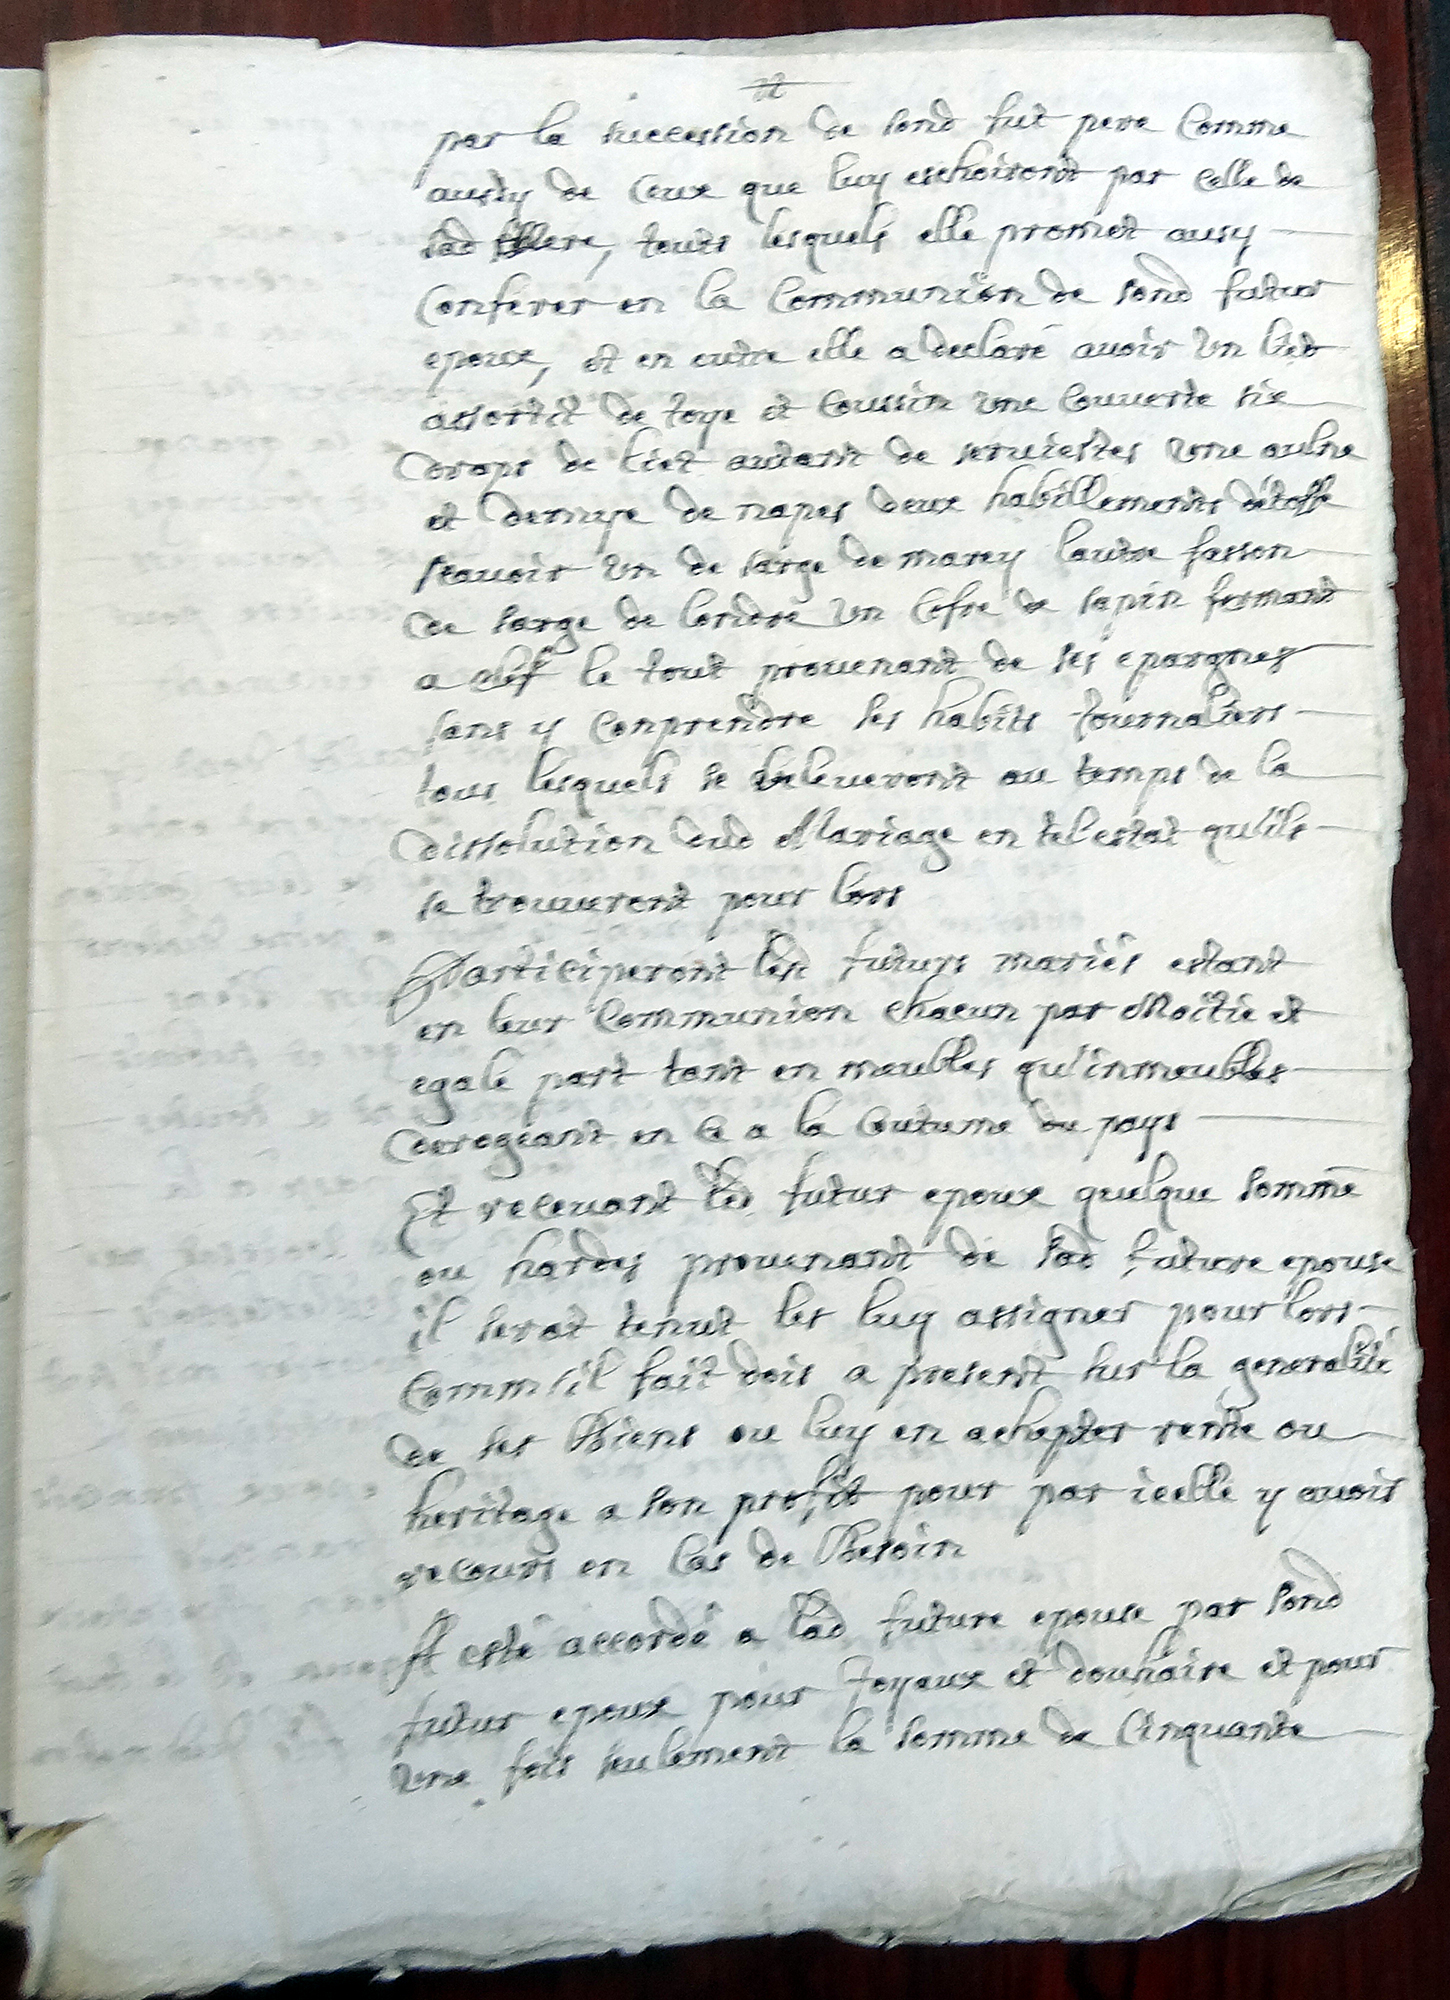 par la succession de sond fut pere Comme
aussy de Ceux que luy eschoiront par Celle de
sad Mere, touts lesquels elle promet ausy
Conferer en la Communion de sond futur
epoux, et en outre elle a declaré auoir un lict
assortit de toye et coussin une Couverte six
draps de lict autant de seruiettes une aulne
et demye de napes deux habillements détoffe
scauoir un de sarge de marcy lautre fasson
de sarge de londre un Cofre de sapin fermant
a clef le tout prouenant de ses epargnes
sans y Conprendre ses habits Journaliers
tous lesquels se releueront au temps de la
dissolution dud Mariage en tel estat qu'ils
se trouueront pour lors
Participeront lesd futurs mariés estant
en leur Communion chacun par Moitié et
egale part tant en meubles qu'inmeubles
derogeant en ce a la Coutume du pays
Et receuant led. futur epoux quelque somme
ou hardes prouenant de sad future epouse
il serat tenut les luy assigner pour lors
Comm'il fait dois a present sur la generalité
de ses Biens ou luy en achapter rente ou
heritage a son profit pour par icelle y auoir
recours en Cas de Besoin
A esté accordé a lad. future epouse par sond
futur epoux pour Joyaux et douhaire et pour
une fois seulement la somme de Cinquante